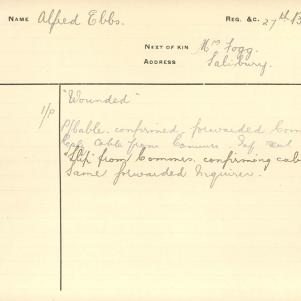 NAME Alfred Ebbs. REG. &C. 27th B
NEXT OF KIN Mrs Fogg.
ADDRESS Salisbury.
"Wounded"
1/P P/Cable. confirmed forwarded Com
Copy cable from Commrs Inf sent
"Slip" from Commrs. confirming cab
Same forwarded Inquirer.